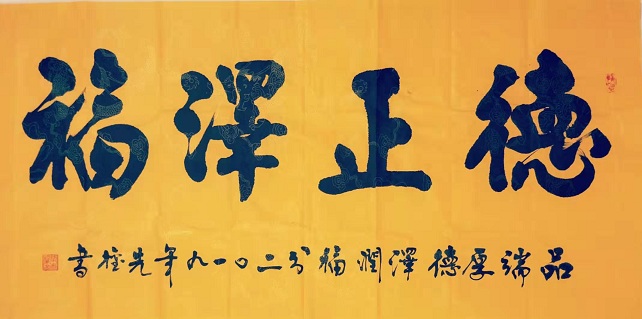 德正澤福
品端厚德澤潤福分二〇一九年先書